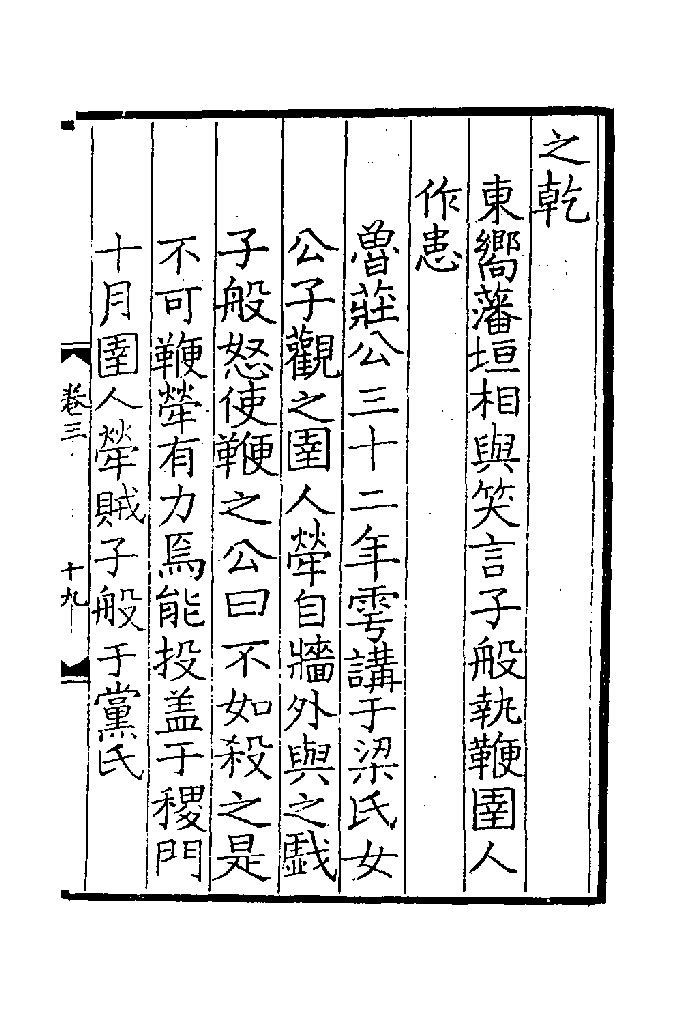 之乾
東嚮藩垣相與笑言子般執鞭圉人
作患
魯莊公三十二年雩講于梁氏女
公子觀之圉人犖自牆外與之戲
子般怒使鞭之公曰不如殺之是
不可鞭犖有力焉能投盖于稷門
十月圉人犖賊子般于黨氏
卷三
十九